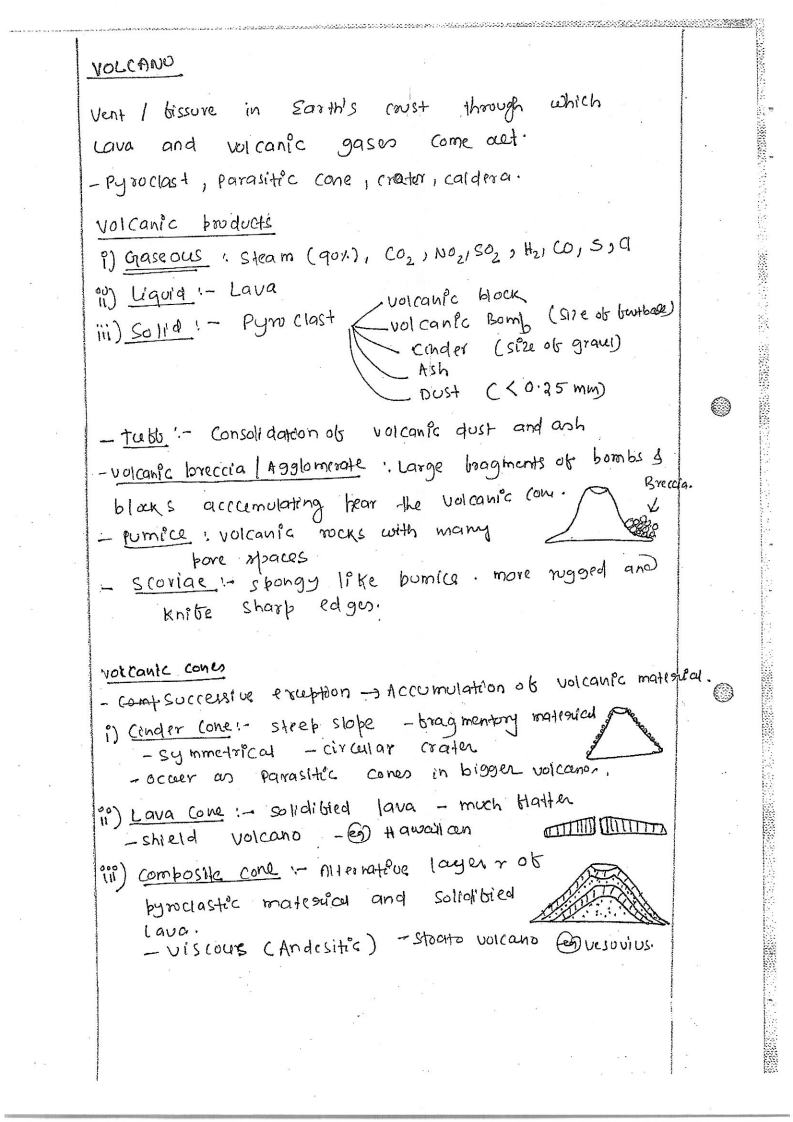 VOLCANO
Vent / fissure in Earth's crust through which
Lava and volcanic gases come out.
- Pyroclast, parasitic cone, crater, caldera.
Volcanic products
i) Gaseous : Steam (90%), CO2, NO2, SO2, H2, CO, S, Cl
ii) Liquid :- Lava
iii) Solid :- Pyroclast
volcanic block
volcanic Bomb (size of football)
Cinder (size of gravel)
Ash
Dust (< 0.25 mm)
- Tuff :- Consolidation of volcanic dust and ash
- Volcanic breccia / Agglomerate : Large fragments of bombs &
blocks acccumulating near the volcanic cone.
Breccia.
- Pumice : volcanic rocks with many
pore spaces
- Scoriae :- spongy like pumice. more rugged and
knife sharp edges.
Volcanic cones
- Successive eruption → Accumulation of volcanic material.
i) Cinder Cone :- steep slope - fragmentory material
- symmetrical - circular crater
- occur as parasitic cones in bigger volcano.
ii) Lava Cone :- solidified lava - much flatter
- shield volcano - eg) Hawaiian
iii) Composite cone :- Alternative layers of
pyroclastic material and solidified
lava.
- viscous (Andesitic) - Strato volcano eg) vesuvius.